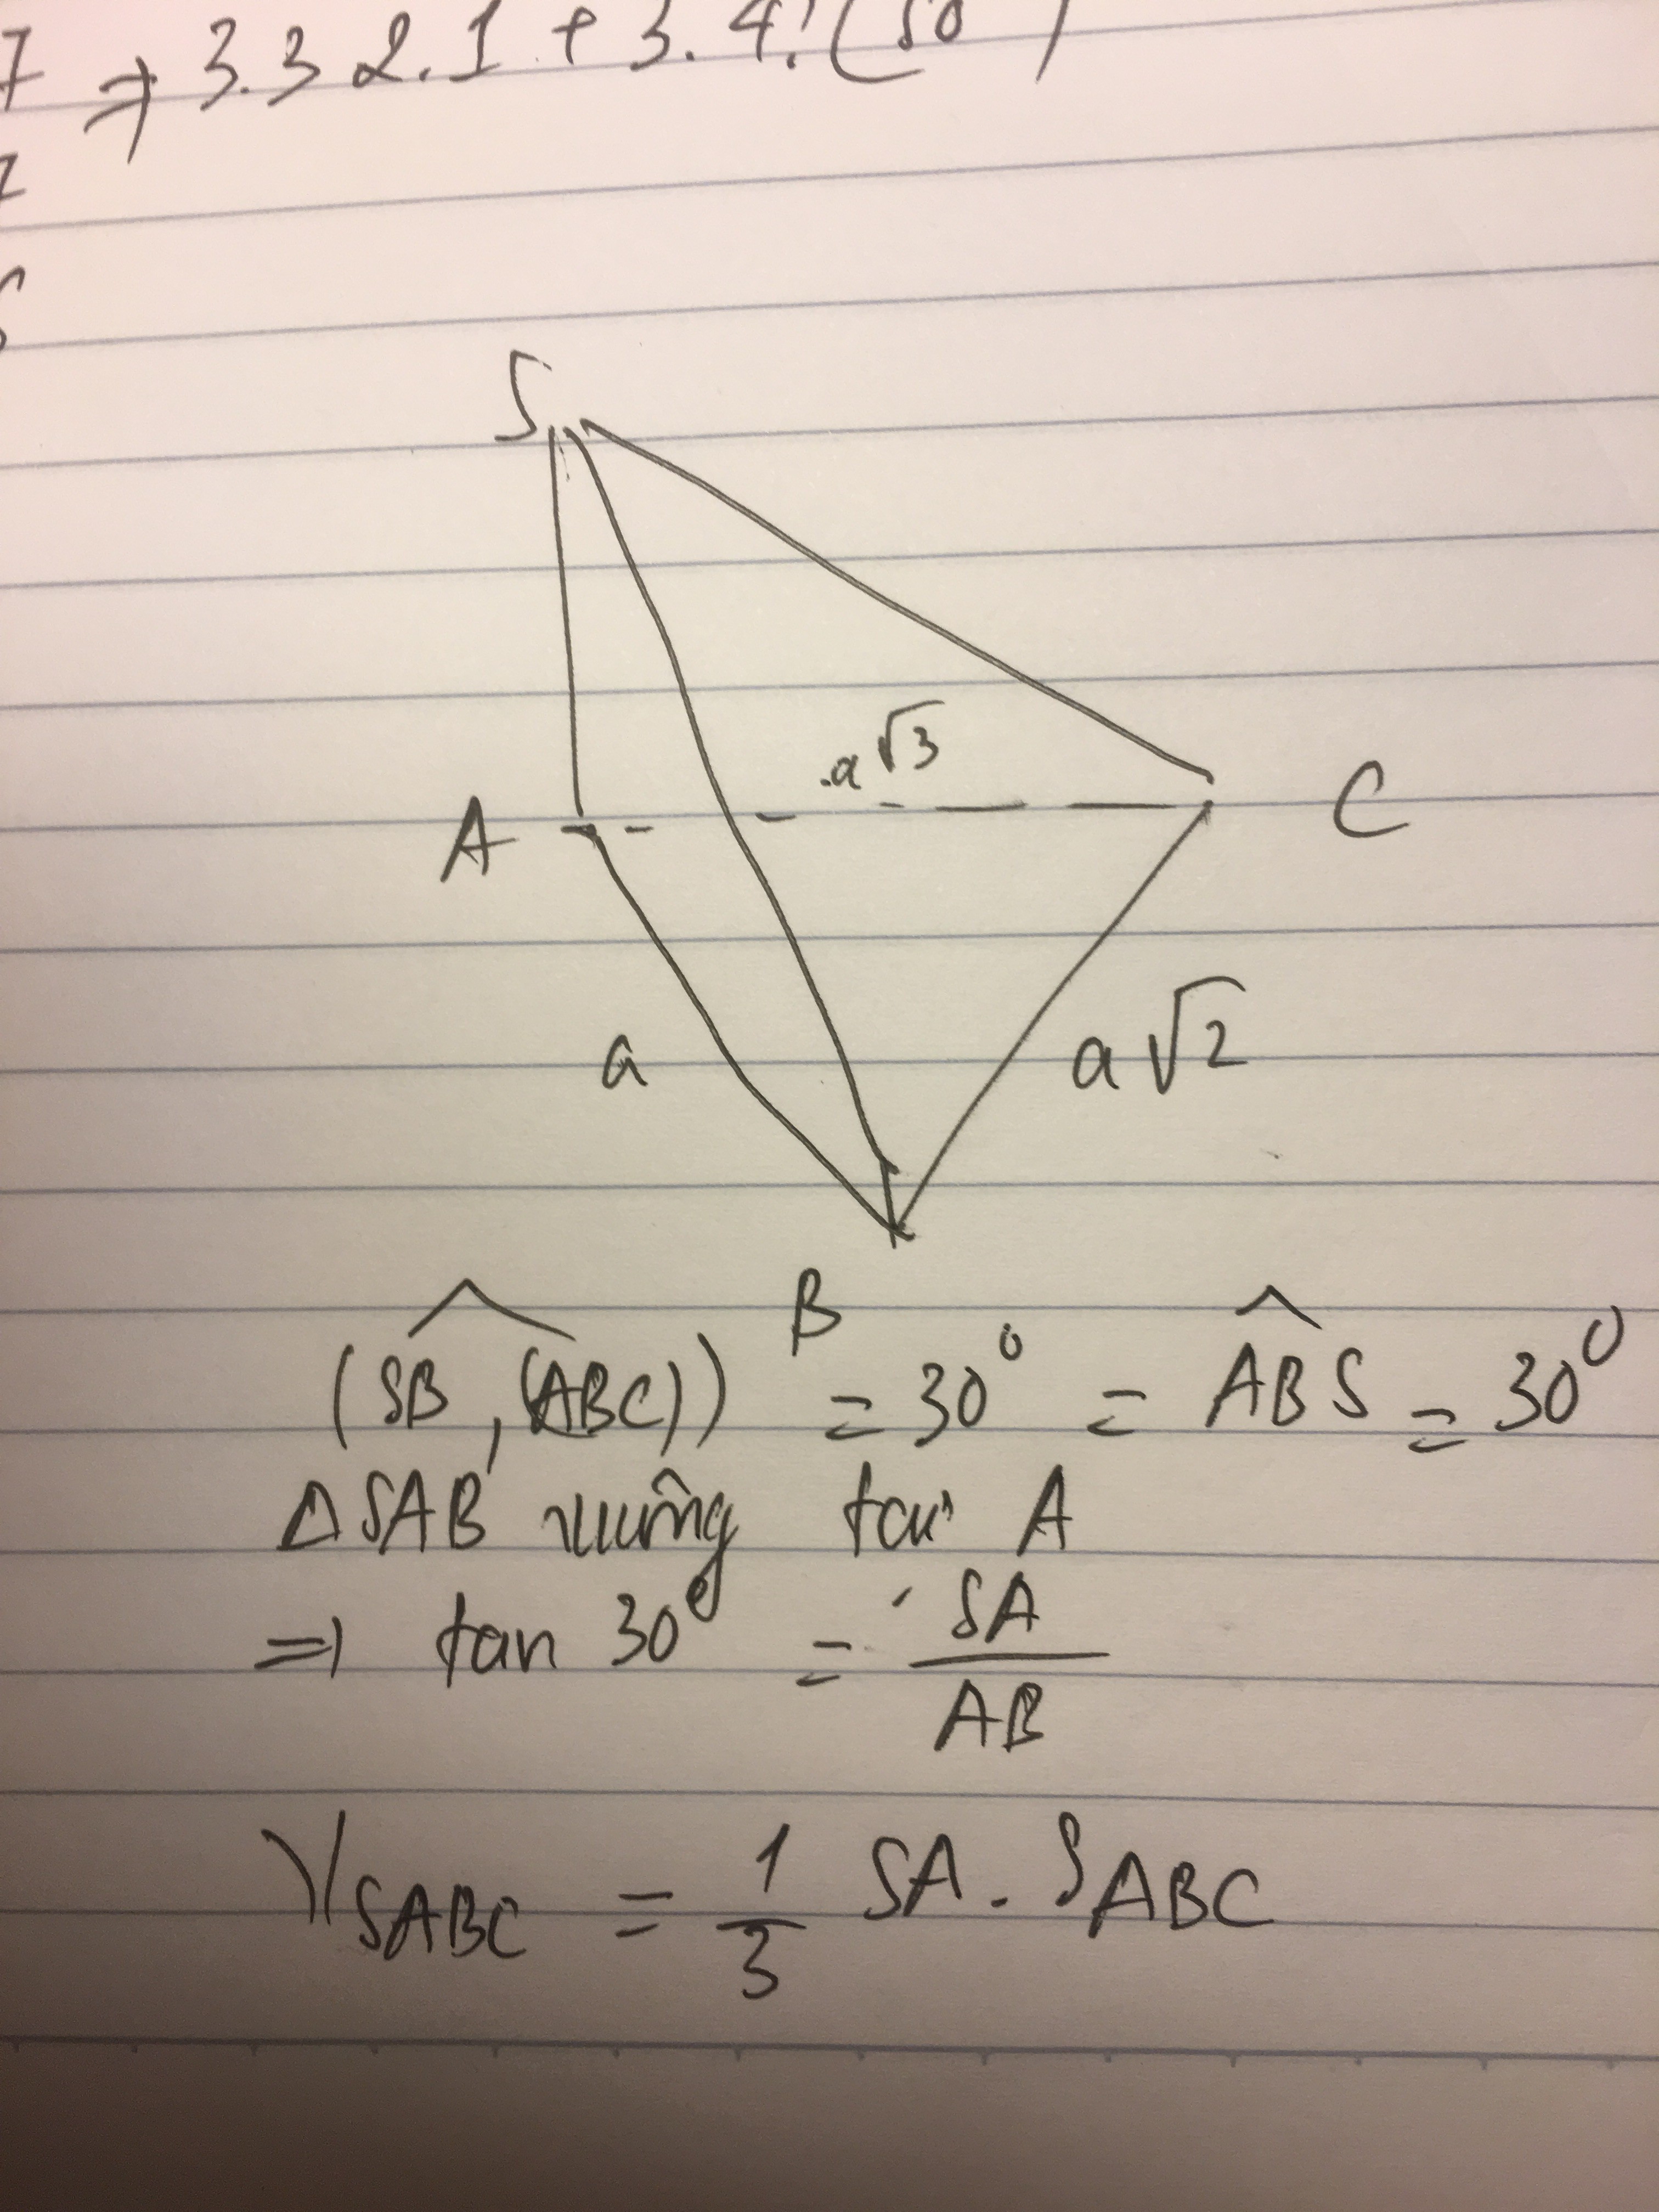 7 ⇒ 3.3 2.1 + 3.4!(50)
7
S
a√3
A
C
a
a√2
B
(SB, (ABC)) = 30° = ABS = 30°
ΔSAB vuông tại A
⇒ tan 30° = SA/AB
V_SABC = 1/3 SA. S_ABC